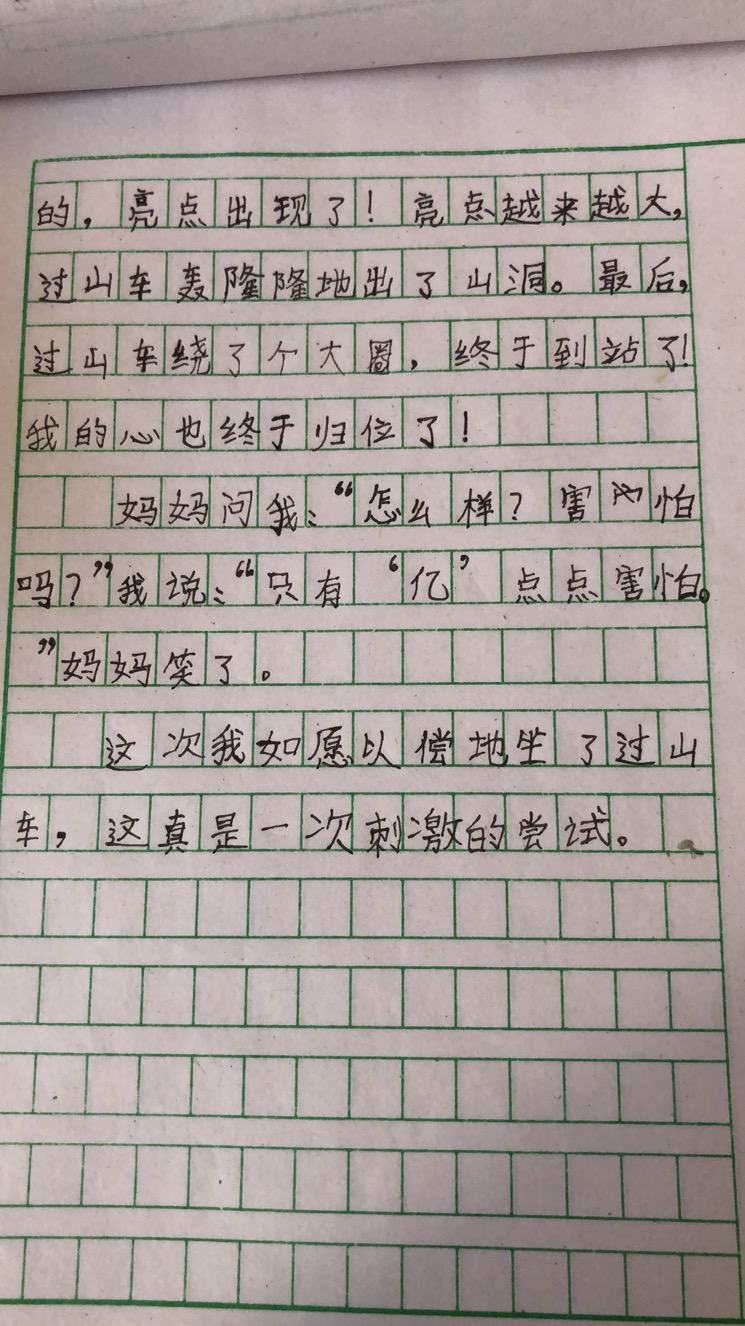 的，亮点出现了！亮点越来越大，
过山车轰隆隆地出了山洞。最后，
过山车绕了个大圈，终于到站了！
我的心也终于归位了！
妈妈问我：“怎么样？害怕
吗？”我说：“只有‘亿’点点害怕。
”妈妈笑了。
这次我如愿以偿地坐了过山
车，这真是一次刺激的尝试。